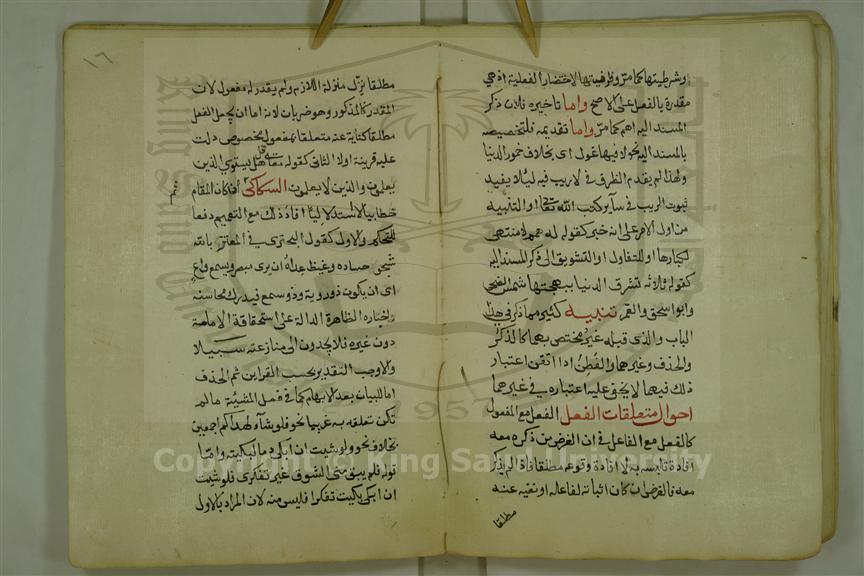 وشرطيتها كما مر وظرفيتها لاختصار الفعلية اذ هي
مقدرة بالفعل على الاصح واما تاخيره فلان ذكر
المسند اليه اهم كما مر واما تقديمه فلتخصيصه
بالمسند اليه نحو لا فيها غول اى بخلاف خمور الدنيا
ولهذا لم يقدم الظرف في لا ريب فيه ليلا يفيد
ثبوت الريب في ساير كتب الله تعالى او التنبيه
من اول الامر على انه خبر كقوله له همم لا منتهى
لكبارها او للتفاول او التشويق الى ذكر المسند اليه
كقوله ثلاثة تشرق الدنيا ببهجتها شمس الضحى
وابو اسحق والقمر تنبيه كثير مما ذكر في هذا
الباب والذى قبله غير مختص بهما كالذكر
والحذف وغيرهما والفطن اذا اتقن اعتبار
ذلك فيهما لا يخفى عليه اعتباره في غيرهما
احوال متعلقات الفعل الفعل مع المفعول
كالفعل مع الفاعل في ان الغرض من ذكره معه
افادة تلبسه به لا افادة وقوعه مطلقا فاذا لم يذكر
معه فالغرض ان كان اثباته لفاعله او نفيه عنه
مطلقا
١٦
مطلقا نزل منزلة اللازم ولم يقدر له مفعول لان
المقدر كالمذكور وهو ضربان لانه اما ان يجعل الفعل
مطلقا كناية عنه متعلقا بمفعول مخصوص دلت
عليه قرينة اولا الثانى كقوله تعالى قل هل يستوي الذين
يعلمون والذين لا يعلمون السكاكى ثم اذا كان المقام
خطابيا لا استدلاليا افاد ذلك مع التعميم دفعا
للتحكم والاول كقول البحترى في المعتز بالله
شجو حساده وغيظ عداه ان يرى مبصر ويسمع واع
اى ان يكون ذو روية وذو سمع فيدرك محاسنه
واخباره الظاهرة الدالة على استحقاقه الامامة
دون غيره فلا يجدون الى منازعته سبيلا
والا وجب التقدير بحسب القراين ثم الحذف
اما للبيان بعد الابهام كما في فعل المشيئة ما لم
تكن تعلقه به غريبا نحو فلو شآء لهداكم اجمعين
بخلاف نحو ولو شيت ان ابكى دما لبكيته واما
قوله فلم يبق منى الشوق غير تفكرى فلو شيت
ان ابكى بكيت تفكرا فليس منه لان المراد بالاول
Copyright © King Saud University
1957